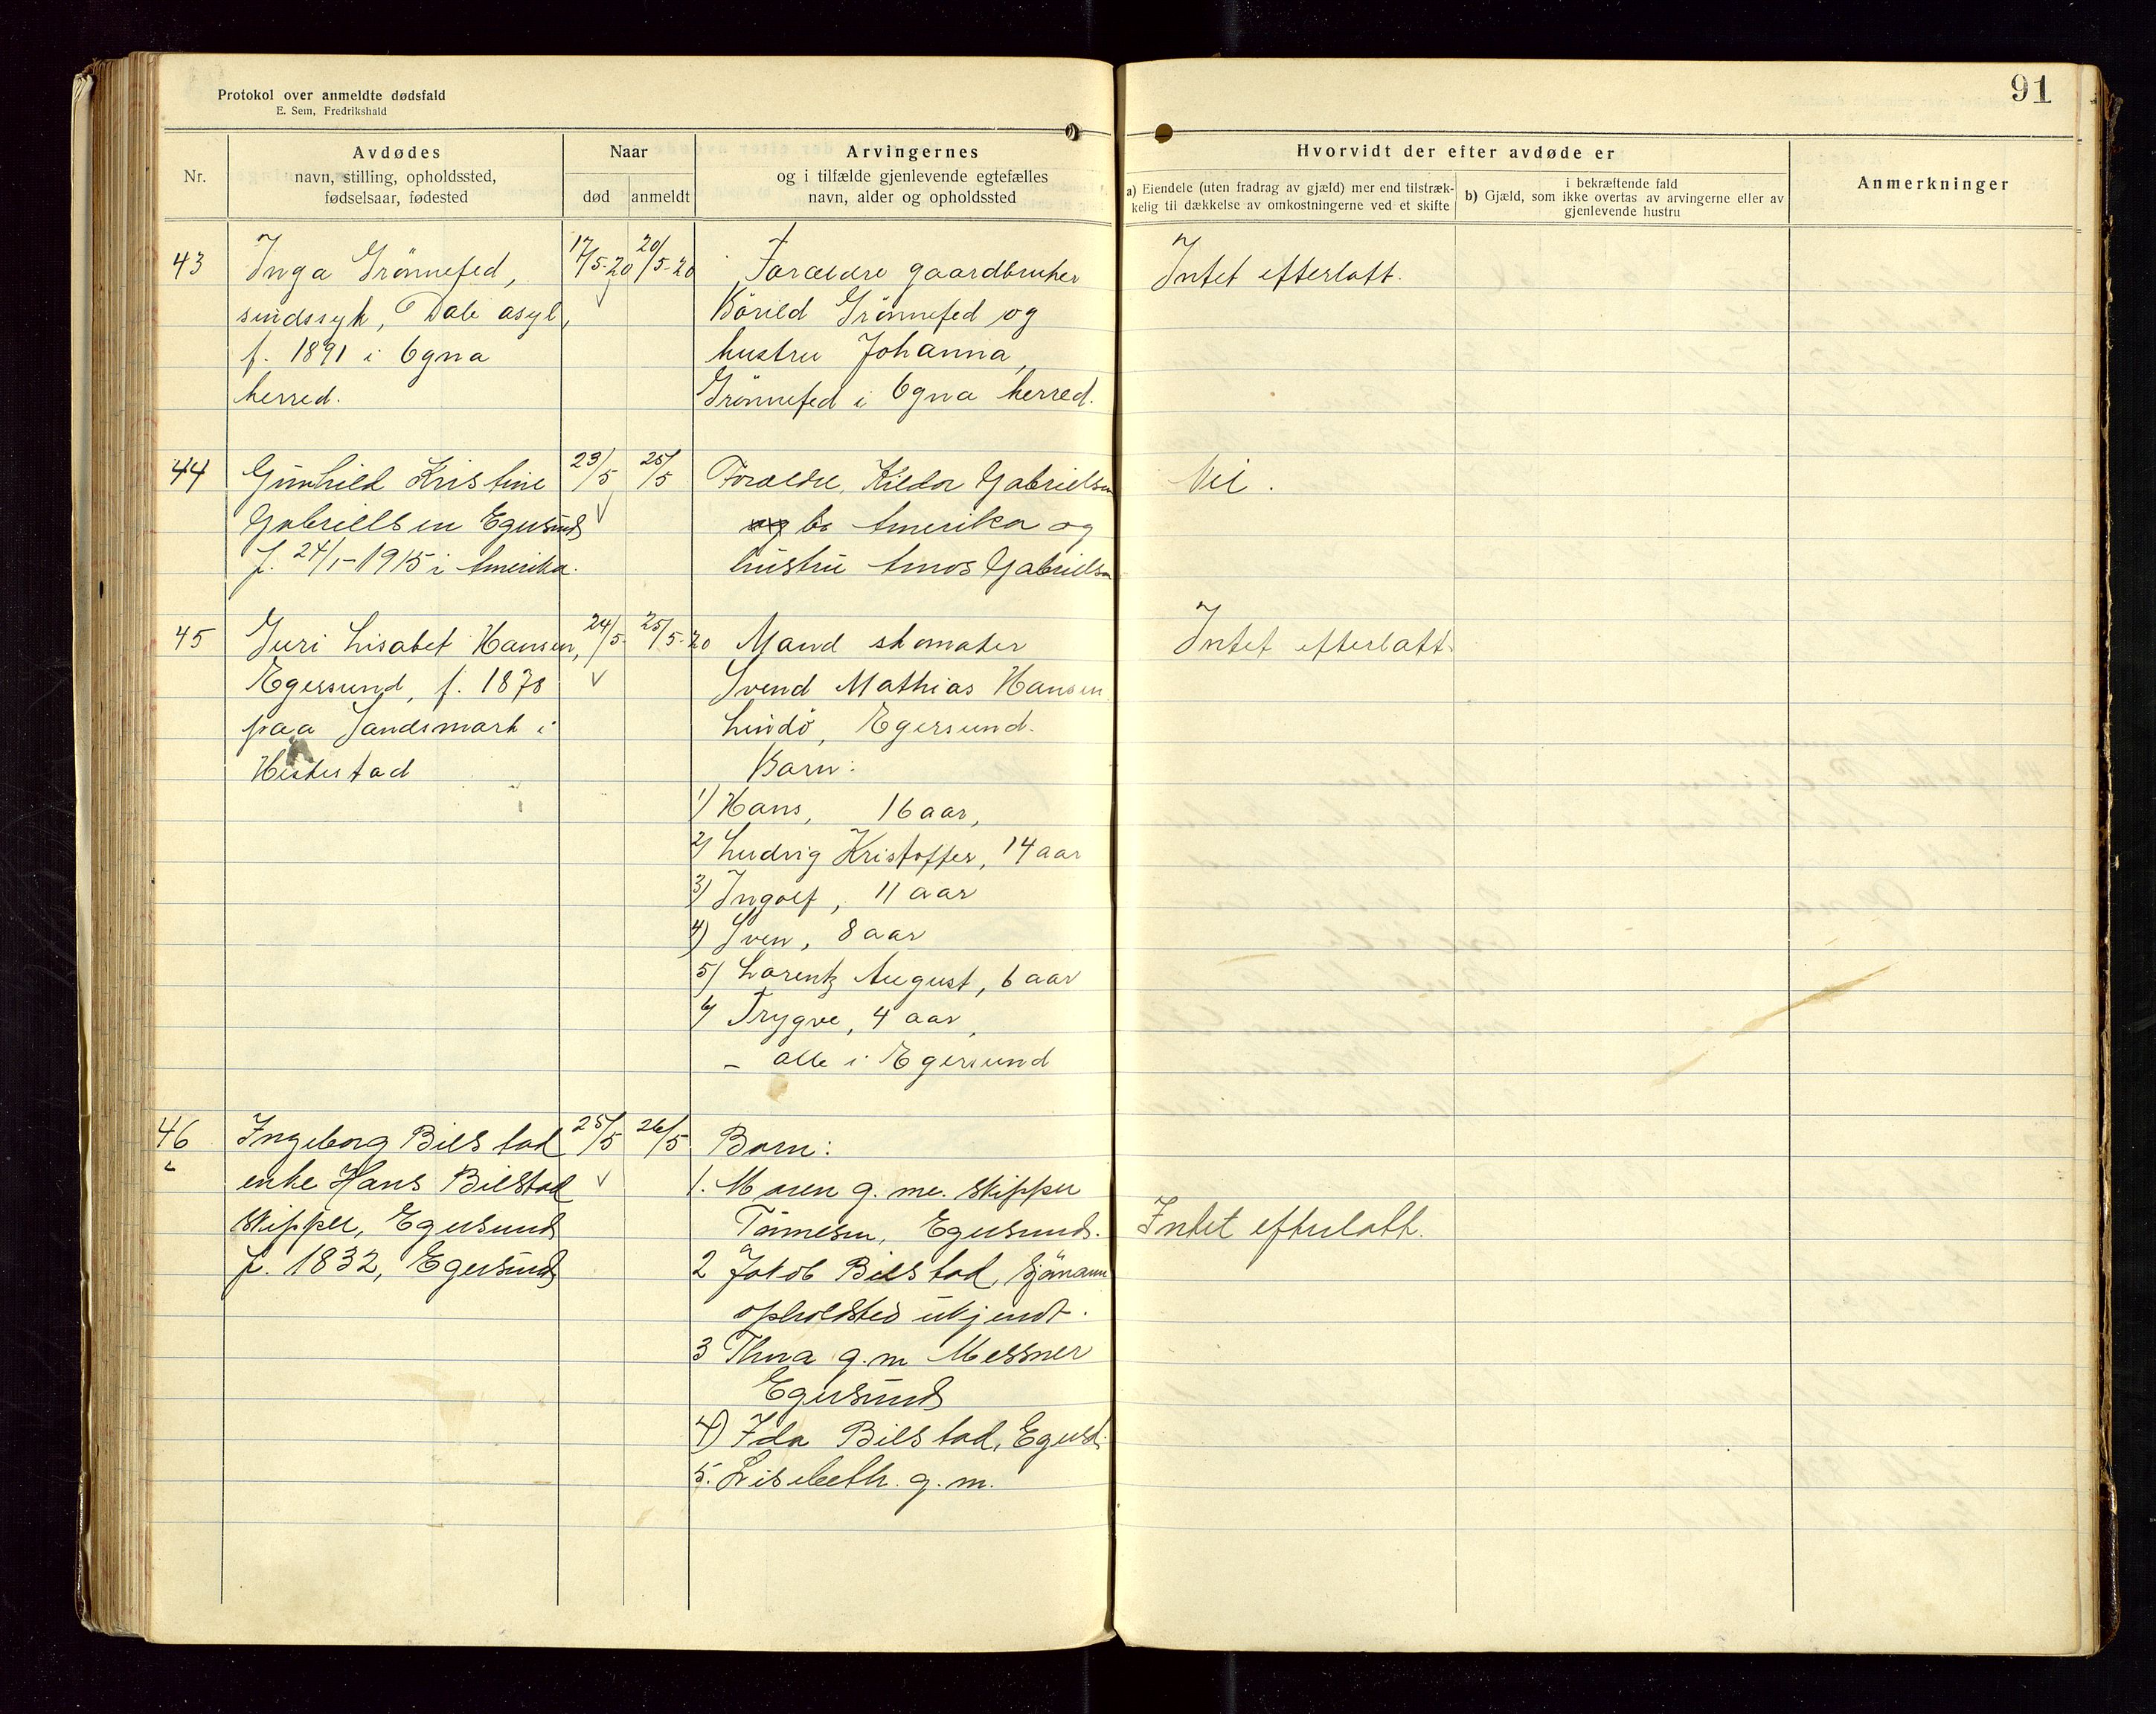 Protokol over anmeldte dødsfald
E. Sem, Fredrikshald
91
Nr.
Avdødes
navn, stilling, opholdssted,
fødselsaar, fødested
Naar
død
anmeldt
Arvingernes
og i tilfælde gjenlevende egtefælles
navn, alder og opholdssted
Hvorvidt der efter avdøde er
a) Eiendele (uten fradrag av gjæld) mer end tilstræk-
kelig til dækkelse av omkostningerne ved et skifte
i bekræftende fald
b) Gjæld, som ikke overtas av arvingerne eller av
gjenlevende hustru
Anmerkninger
43
Inga Grönnefed,
sindssyk, Dale asyl,
f. 1891 i Ogna
herred.
17/5-20
20/5-20
Forældre gaardbruker
Bårild Grönnefed og
hustru Johanna,
Grönnefed i Ogna herred.
Intet efterlatt.
44
Gunhild Kristine
Gabrielsen Egersund
f. 24/1-1915 i Amerika.
23/5
25/5
Forældre, Kildor Gabrielsen
og bs Amerika og
hustru Amos Gabrielsen
Nil.
45
Juri Lisabet Hansen,
Egersund, f. 1878
paa Sandsmark i
Heskestad
24/5-
25/5-20
Mand skomaker
Svend Mathias Hansen
Lindö, Egersund.
Barn:
1) Hans, 16 aar,
2) Ludvig Kristoffer, 14 aar
3) Ingolf, 11 aar
4) Sven, 8 aar
5) Lorentz August, 6 aar
6) Trygve, 4 aar,
- alle i Egersund
Intet efterlatt.
46
Ingeborg Bilstad
enke Hans Bilstad
skipper, Egersund
f. 1832, Egersund
25/5
26/5
Barn:
1. Maren g. me. skipper
Tönnesen, Egersund.
2 Jakob Bilstad, sjömann
opholdsted ukjendt.
3 Thea g.m Messner
Egersund
4) Ida Bilstad, Egersd.
5. Lisebeth. g. m.
Intet efterlatt.